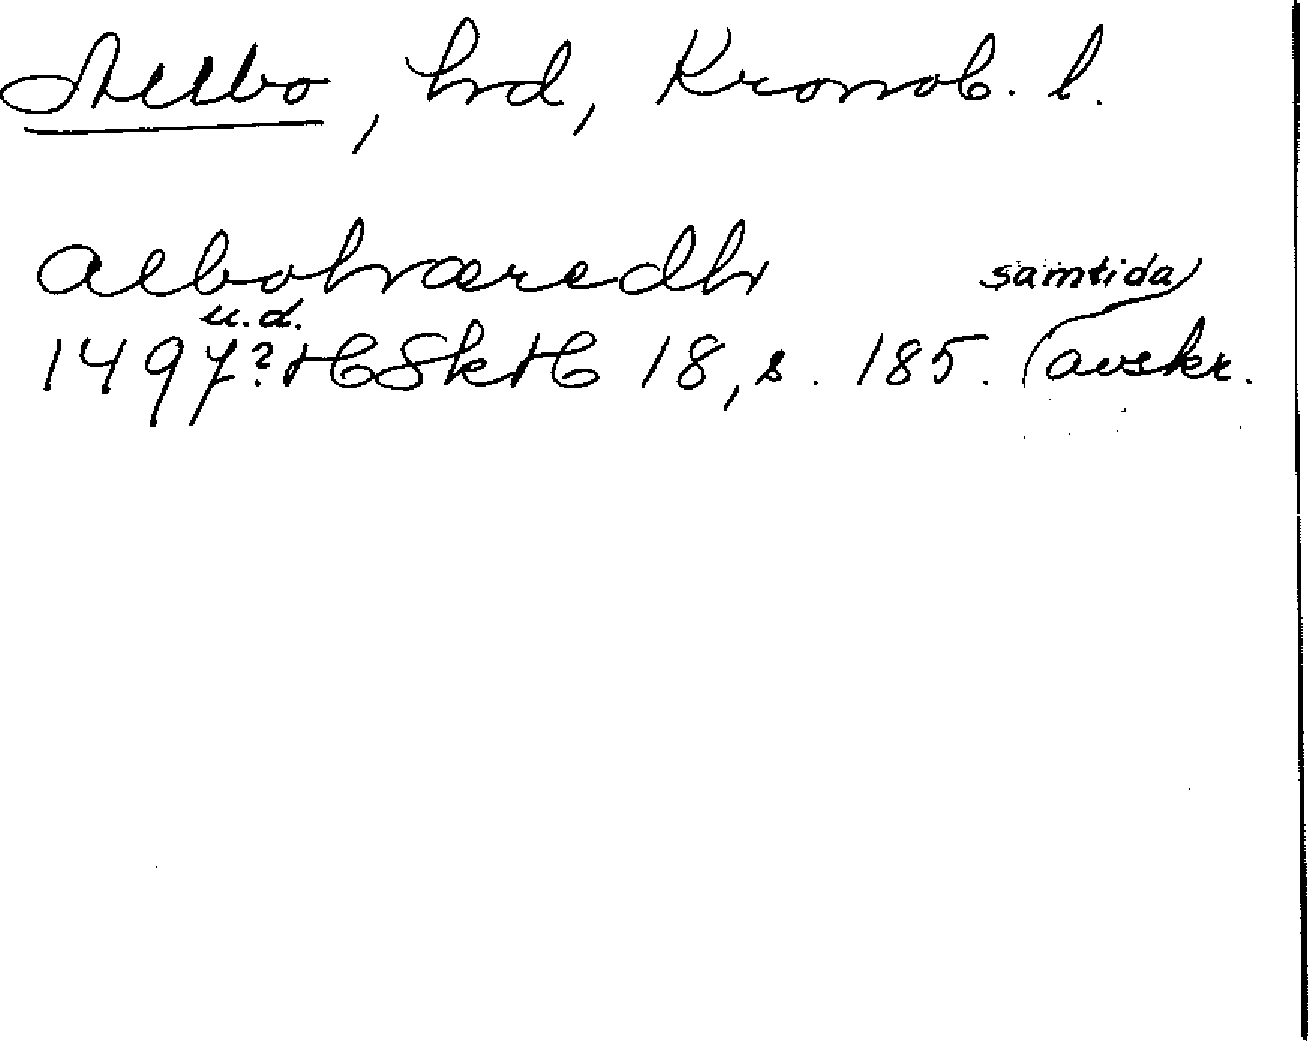 Allbo, hd, Kronob. l.
albohæredh
samtida
u.d.
1497? HSkH 18, s. 185. (avskr.